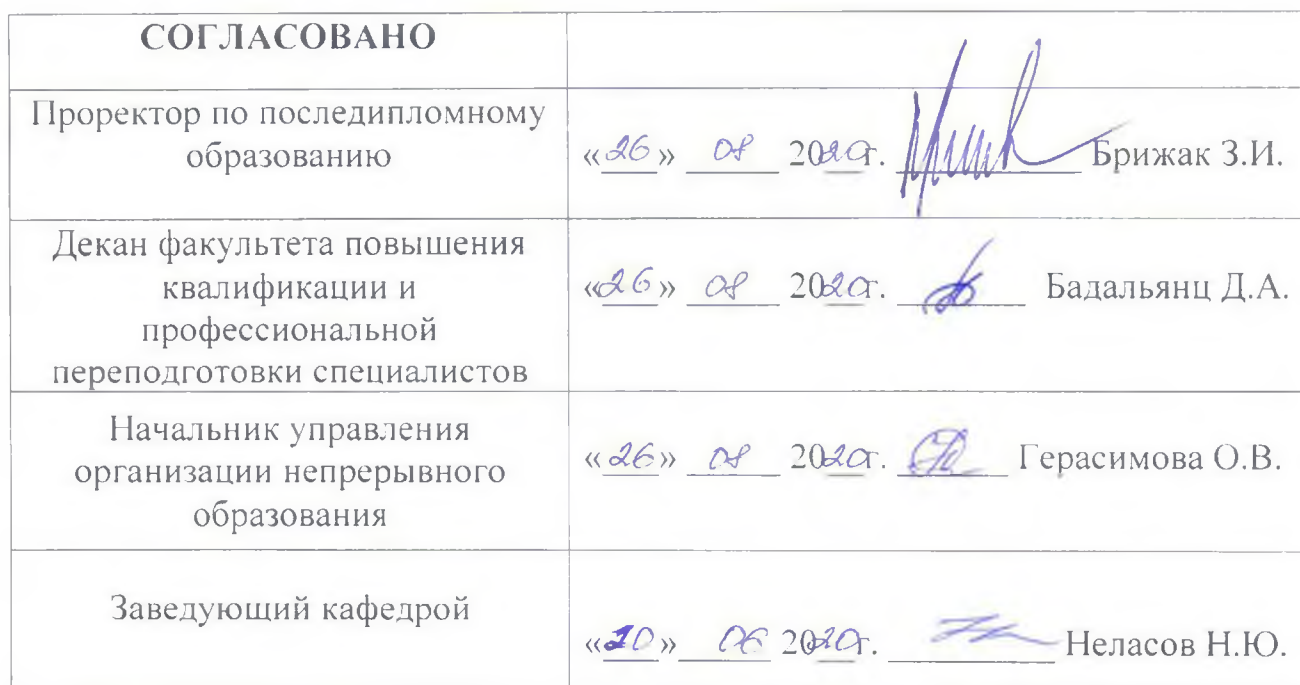 СОГЛАСОВАНО
Проректор по последипломному
образованию
«26» 08 2020г. Брижак З.И.
Декан факультета повышения
квалификации и
профессиональной
переподготовки специалистов
«26» 08 2020г. Бадальянц Д.А.
Начальник управления
организации непрерывного
образования
«26» 08 2020г. Герасимова О.В.
Заведующий кафедрой
06 2020г. Неласов Н.Ю.